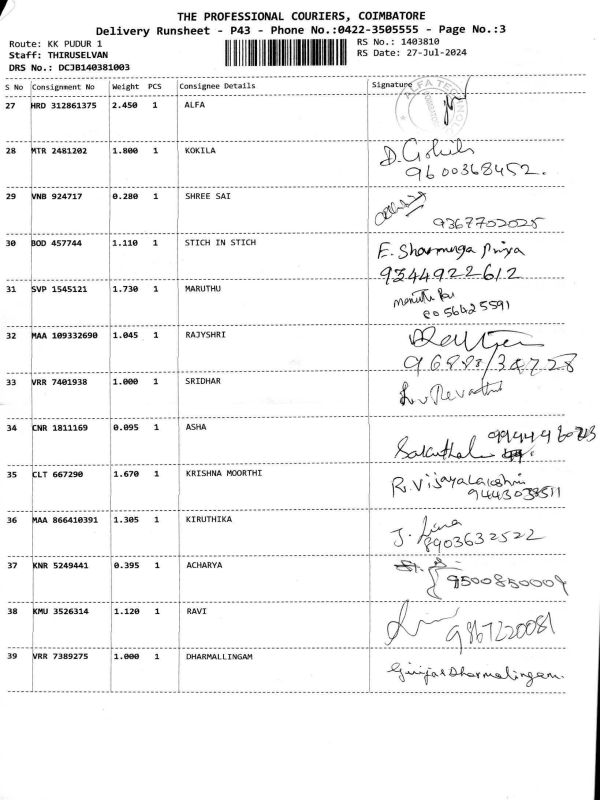 THE PROFESSIONAL COURIERS, COIMBATORE
Delivery Runsheet - P43 - Phone No.:0422-3505555 - Page No.:3
Route: KK PUDUR 1
RS No.: 1403810
Staff: THIRUSELVAN
RS Date: 27-Jul-2024
DRS No.: DCJB140381003
S No Consignment No Weight PCS Consignee Details Signature
27 HRD 312861375 2.450 1 ALFA
28 MTR 2481202 1.800 1 KOKILA D. Gokila
9600368452.
29 VNB 924717 0.280 1 SHREE SAI
9367702025
30 BOD 457744 1.110 1 STICH IN STICH E. Shanmuga Priya
9344922612
31 SVP 1545121 1.730 1 MARUTHU
8056425591
32 MAA 109332690 1.045 1 RAJYSHRI
33 VRR 7401938 1.000 1 SRIDHAR Revathi
34 CNR 1811169 0.095 1 ASHA
35 CLT 667290 1.670 1 KRISHNA MOORTHI R. Vijayalakshmi
9443038511
36 MAA 866410391 1.305 1 KIRUTHIKA J.
8903632522
37 KNR 5249441 0.395 1 ACHARYA 9500850009
38 KMU 3526314 1.120 1 RAVI 9867220081
39 VRR 7389275 1.000 1 DHARMALLINGAM Girija Dharmalingam.